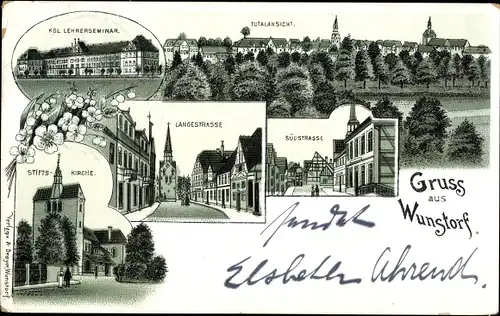 KGL. LEHRERSEMINAR.
TOTALANSICHT.
LANGESTRASSE
SÜDSTRASSE
STIFTS-KIRCHE.
Gruss
aus
Wunstorf.
sendet
Elsbeth Ahrend.
Verlag v. A. Wunstorf.